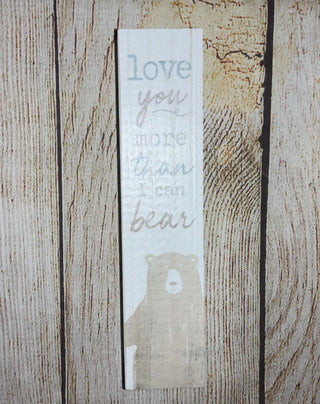 love
you
more
than
i can
bear